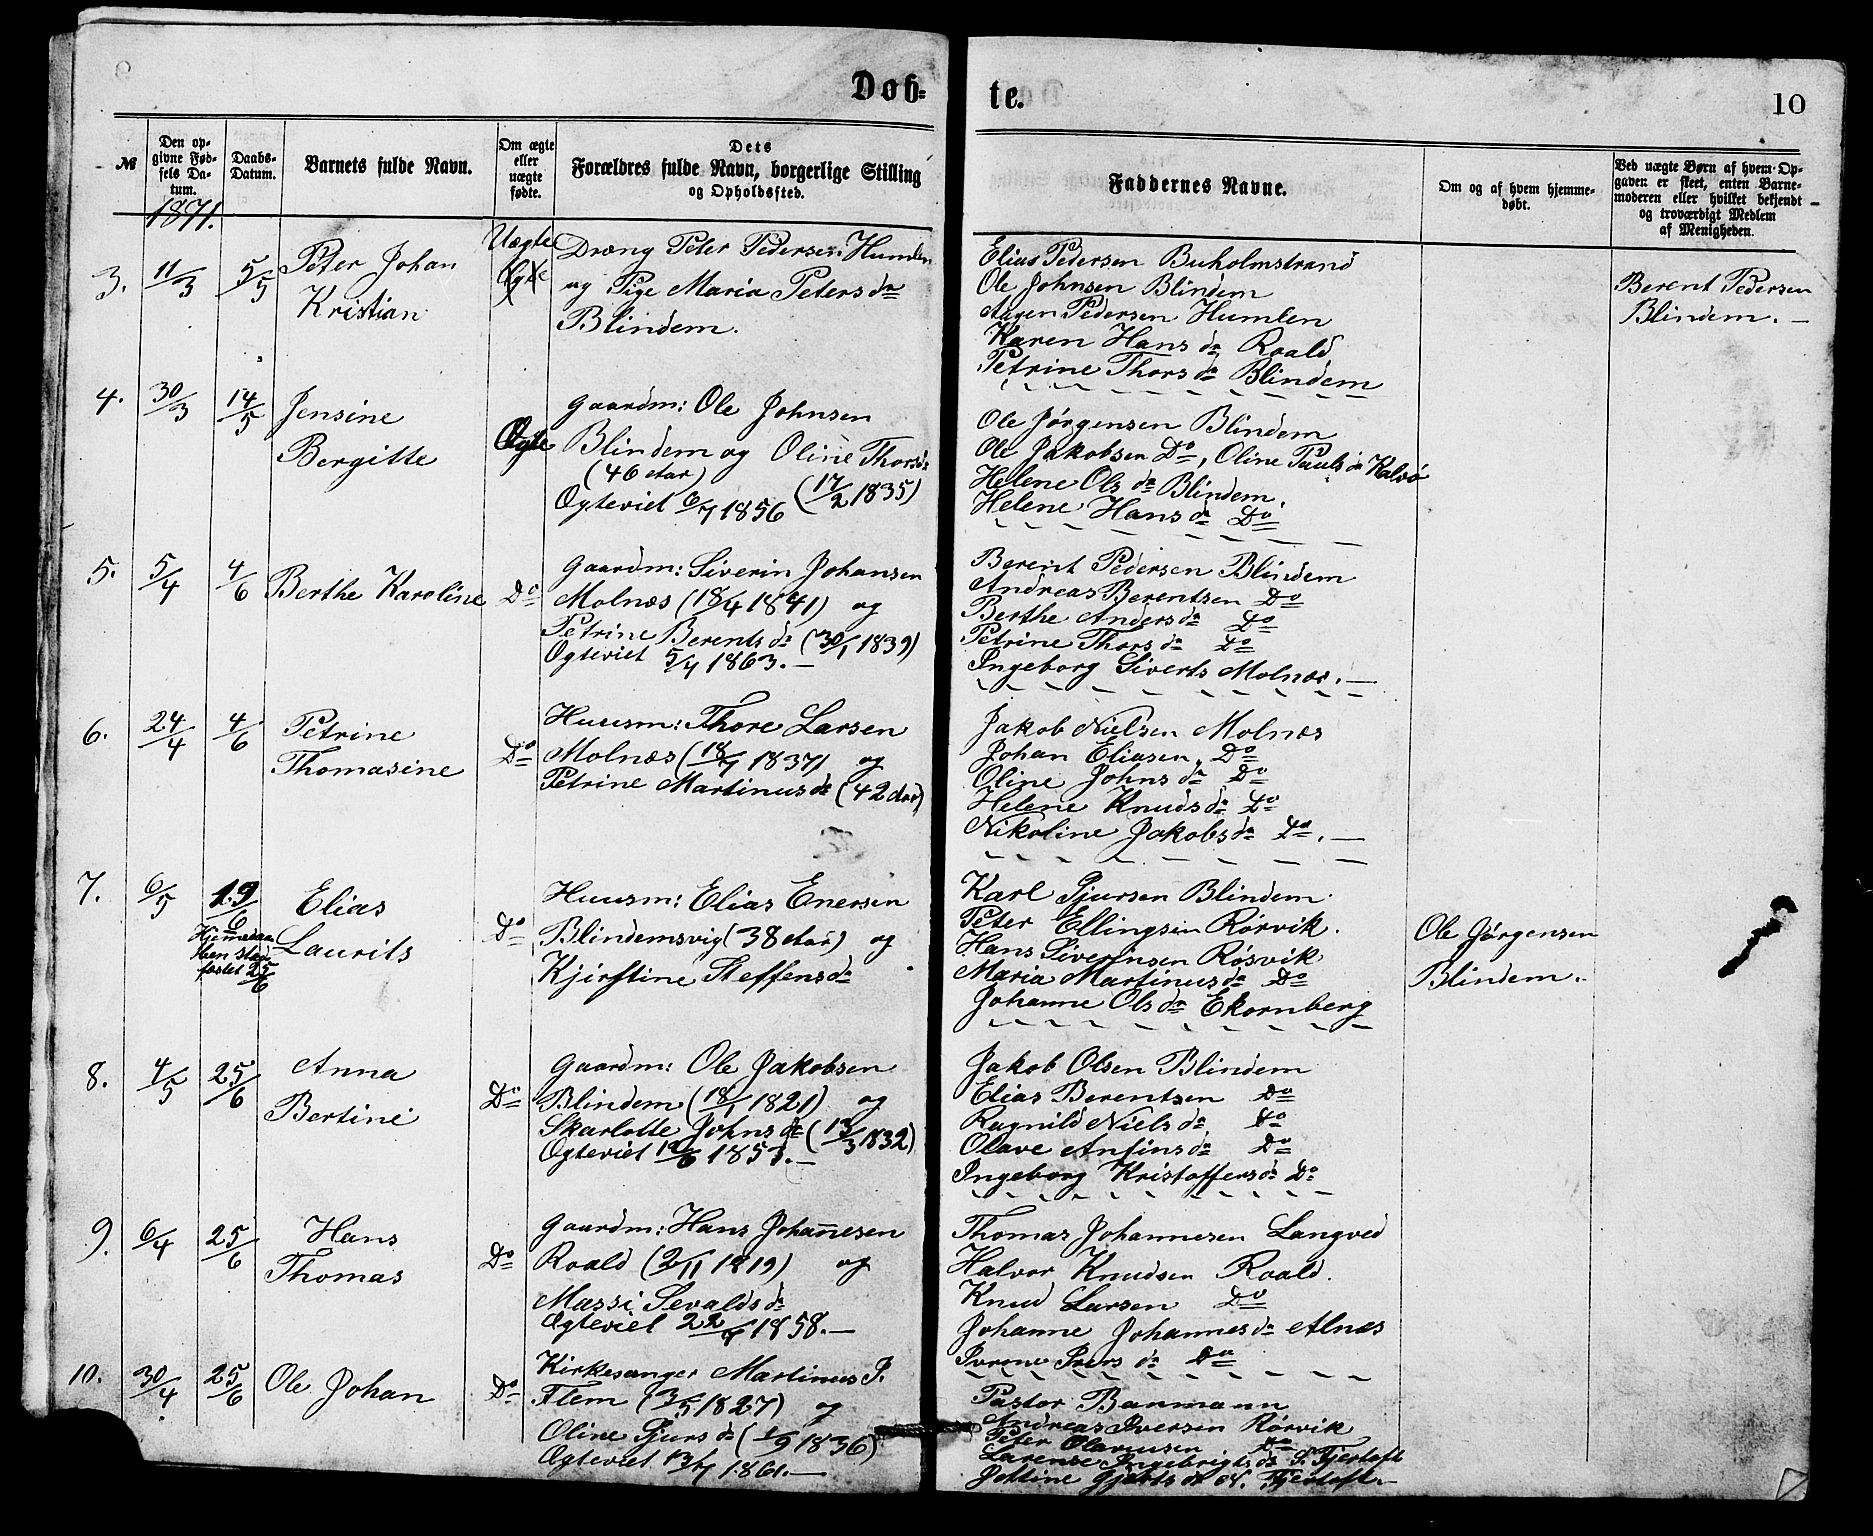 Døb-
te.
10
№
Den op-
givne Fød-
sels Da-
tum.
Daabs-
Datum.
Barnets fulde Navn.
Om ægte
eller
uægte
fødte.
Dets
Forældres fulde Navn, borgerlige Stilling
og Opholdssted.
Faddernes Navne.
Om og af hvem hjemme-
døbt.
Ved uægte Børn af hvem Op-
gaven er skeet, enten Barne-
moderen eller hvilket bekjendt
og troværdigt Medlem
af Menigheden.
1871.
3. 11/3 5/5
Peter Johan
Kristian
Uægte
Ægte
Dræng Peter Pedersen Humlen
og Pige Maria Peters da
Blindem.
Elias Pedersen Buholmstrand
Ole Johnsen Blindem
Aagen Pedersen Humlen
Karen Hans da Roald
Petrine Thors da Blindem
Berent Pedersen
Blindem. —
4. 30/3 14/5
Jensine
Bergitte
Ægte
Gaardm: Ole Johnsen
Blindem og Oline Thorsda
(46 Aar) (17/2 1835)
Ægteviet 6/7 1856
Ole Jørgensen Blindem
Ole Jakobsen Do, Oline Pauls da Kalvø
Helene Ols da Blindem.
Helene Hans da Do
5. 5/4 4/6 Berthe Karoline Do
Gaardm: Siverin Johansen
Molnæs (18/4 1841) og
Petrine Berents da (30/1 1839)
Ægteviet 5/7 1863. —
Berent Pedersen Blindem
Andreas Berentsen Do
Berthe Anders da Do
Petrine Thors da Do
Ingeborg Siverts Molnæs. —
6. 24/4 4/6
Petrine
Thomasine
Do
Huusm: Thore Larsen
Molnæs (18/7 1837) og
Petrine Martinus da (42 Aar)
Jakob Nielsen Molnæs
Johan Eliasen, Do
Oline Johns da Do
Helene Knuds da Do
Nikoline Jakobs da Do. —
7. 6/5 19/6
Hjemmedaa-
ben stad-
fæstet 25/6
Elias
Laurits
Do
Huusm: Elias Enersen
Blindemsvig (38 Aar) og
Kjirstine Steffens da
Karl Gjursen Blindem
Peter Ellingsen Rørvik.
Hans Siverinsen Røsvik
Maria Martinus da Do
Johanne Ols da Ekornberg
Ole Jørgensen
Blindem.
8. 4/5 25/6
Anna
Bertine
Do
Gaardm: Ole Jakobsen
Blindem (18/1 1821) og
Skarlotte Johns da (13/3 1832)
Ægteviet 12/6 1853. —
Jakob Olsen Blindem
Elias Berentsen Do
Ragnild Niels da Do
Olave Anfins da Do
Ingeborg Kristoffers da Do
9. 6/4 25/6
Hans
Thomas
Do
Gaardm: Hans Johannesen
Roald (2/11 1819) og
Massi Sevalds da
Ægteviet 22/4 1858. —
Thomas Johannesen Langved
Halvor Knudsen Roald.
Knud Larsen Do
Johanne Johannes da Alnæs
Ivrene Ivers da Do
10. 30/4 25/6 Ole Johan Do
Kirkesanger Martinus J.
Flem (3/5 1827) og
Oline Gjurs da (1/9 1836)
Ægteviet 13/7 1861. —
Pastor Barmann
Andreas Iversen Rørvik
Peter Olavusen Do
Larense Ingebrigts da S. Fjertoft
Jottine Gjerts da N. Fjertoft. —